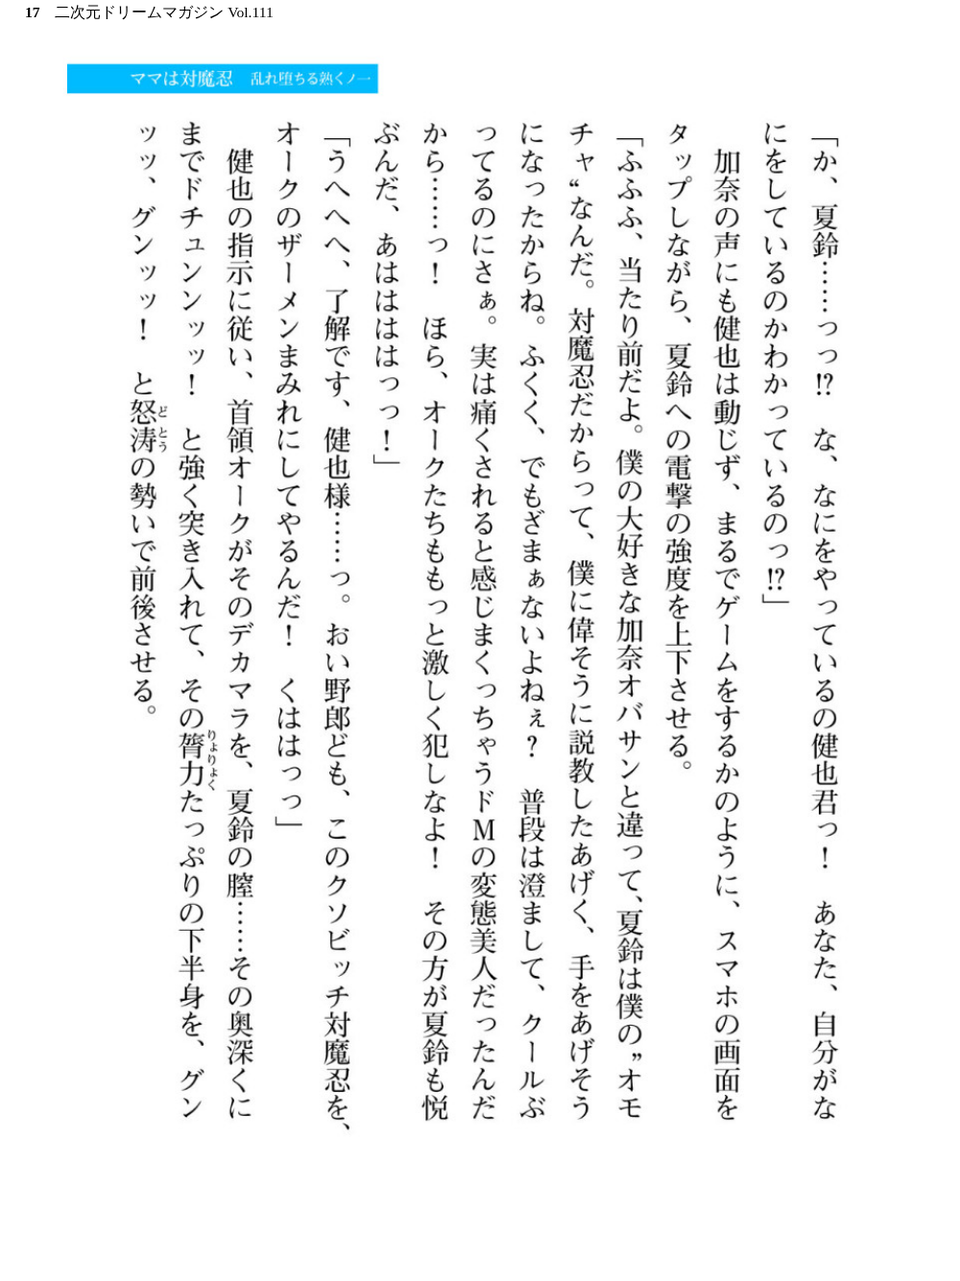 17 二次元ドリームマガジン Vol.111
ママは対魔忍 乱れ堕ちる熟くノ一
「か、夏鈴……っっ!? な、なにをやっているの健也君っ！ あなた、自分がな
にをしているのかわかっているのっ!?」
加奈の声にも健也は動じず、まるでゲームをするかのように、スマホの画面を
タップしながら、夏鈴への電撃の強度を上下させる。
「ふふふ、当たり前だよ。僕の大好きな加奈オバサンと違って、夏鈴は僕の”オモ
チャ“なんだ。対魔忍だからって、僕に偉そうに説教したあげく、手をあげそう
になったからね。ふくく、でもざまぁないよねぇ？ 普段は澄まして、クールぶ
ってるのにさぁ。実は痛くされると感じまくっちゃうドＭの変態美人だったんだ
から……っ！ ほら、オークたちももっと激しく犯しなよ！ その方が夏鈴も悦
ぶんだ、あははははっっ！」
「うへへへ、了解です、健也様……っ。おい野郎ども、このクソビッチ対魔忍を、
オークのザーメンまみれにしてやるんだ！ くははっっ」
健也の指示に従い、首領オークがそのデカマラを、夏鈴の膣……その奥深くに
までドチュンンッッ！ と強く突き入れて、その膂力たっぷりの下半身を、グン
ッッ、グンッッ！ と怒涛の勢いで前後させる。
りょりょく
どとう